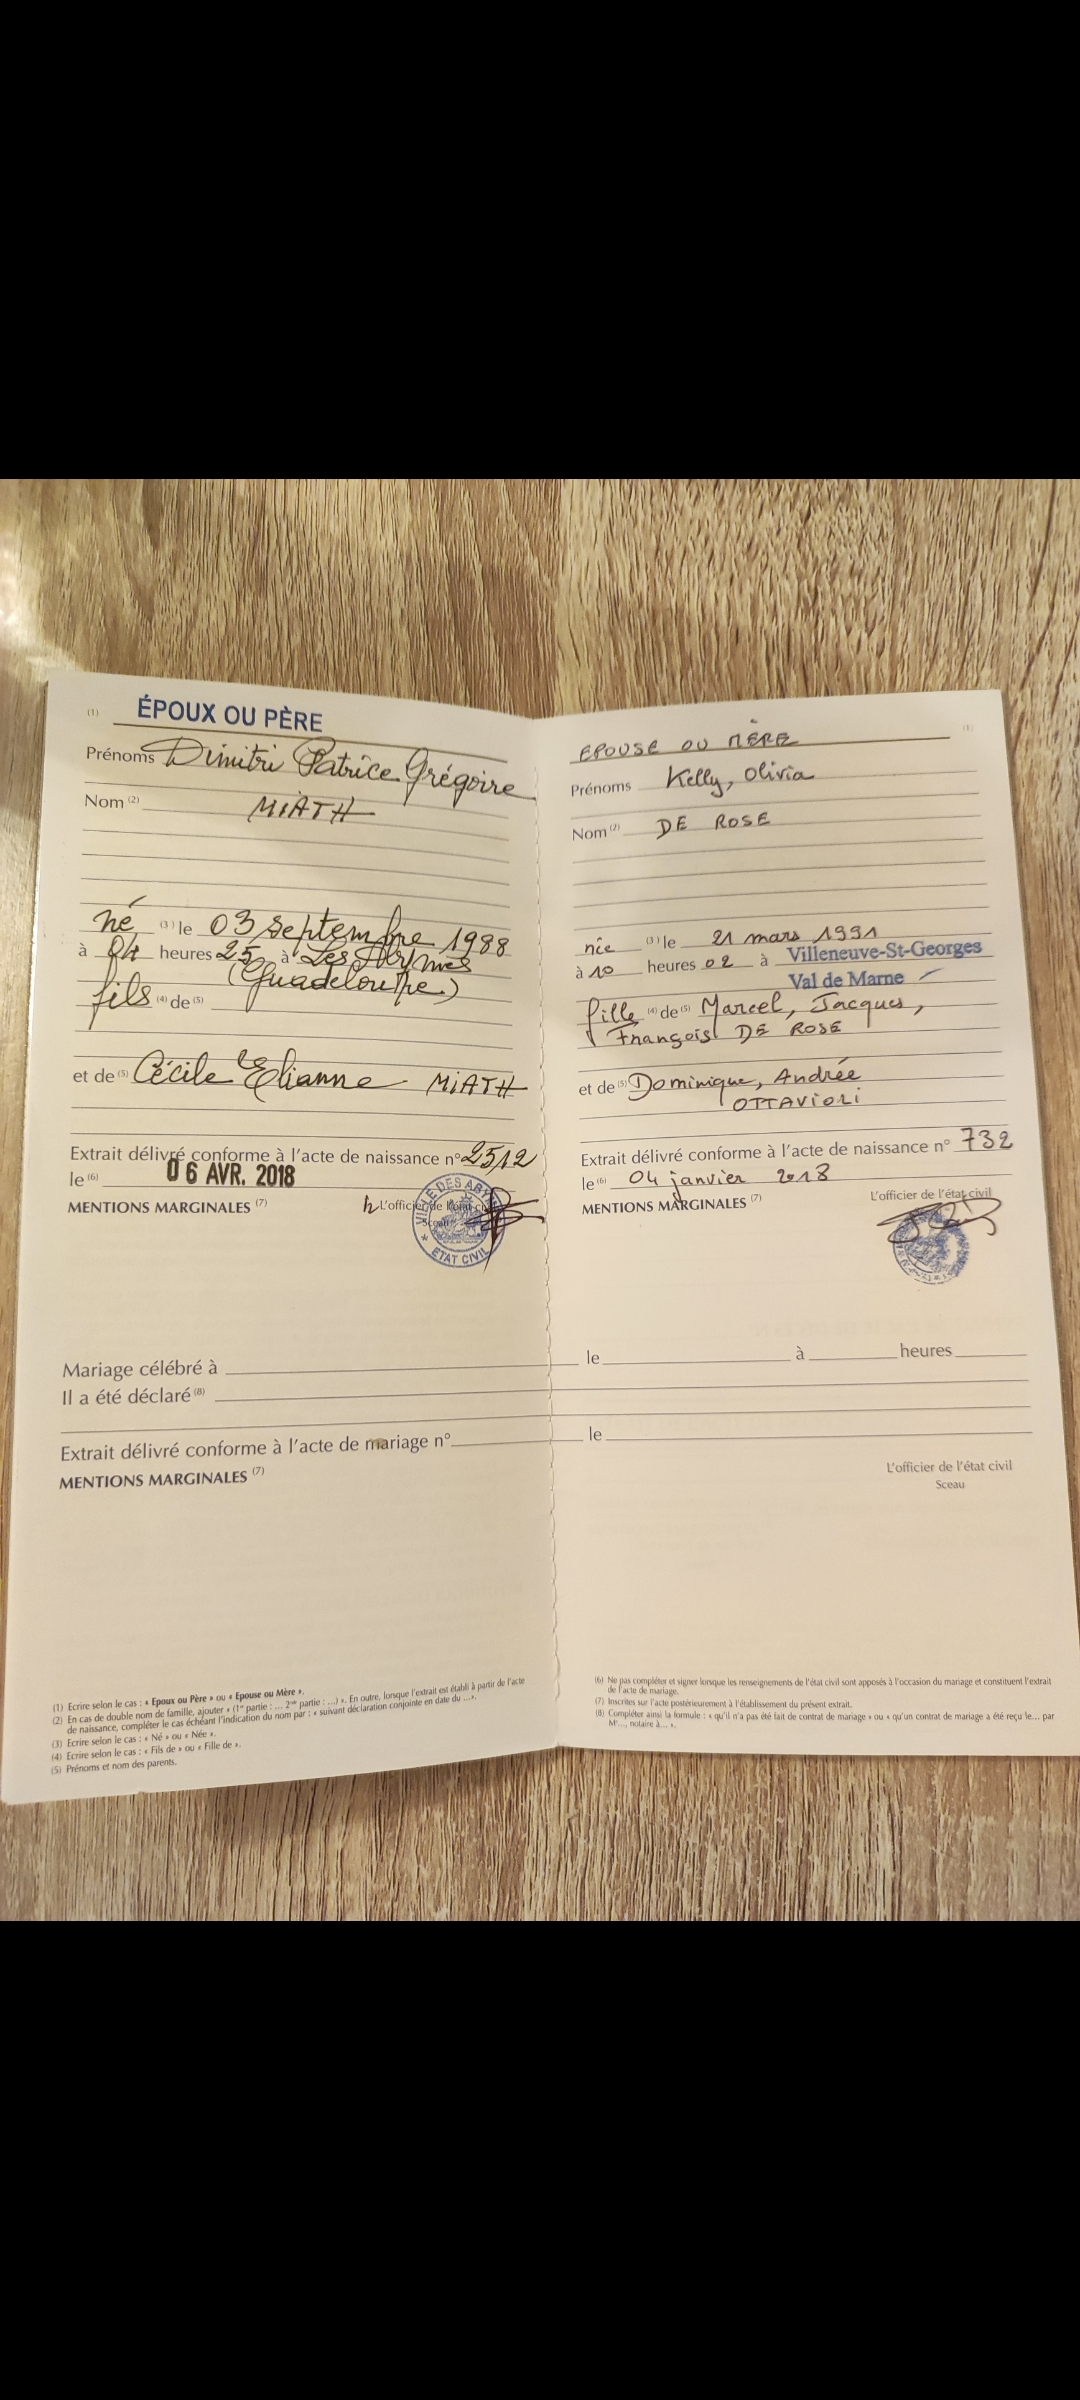 (1) ÉPOUX OU PÈRE
Prénoms Dimitri Patrice Grégoire
Nom (2) MIATH
né (3) le 03 septembre 1988
à 04 heures 25 à Les Abymes
(Guadeloupe)
fils (4) de (5)
et de (5) Cécile Elianne MIATH
Extrait délivré conforme à l'acte de naissance n° 2512
le (6) 06 AVR. 2018
MENTIONS MARGINALES (7) L'officier de l'état civil
Sceau
VILLE DES ABYMES
ETAT CIVIL
(1)
EPOUSE OU MÈRE
Prénoms Kelly, Olivia
Nom (2) DE ROSE
née (3) le 21 mars 1991
à 10 heures 02 à Villeneuve-St-Georges
Val de Marne
fille (4) de (5) Marcel, Jacques,
François DE ROSE
et de (5) Dominique, Andrée
OTTAVIOLI
Extrait délivré conforme à l'acte de naissance n° 732
le (6) 04 janvier 2018
MENTIONS MARGINALES (7) L'officier de l'état civil
Mariage célébré à le à heures
Il a été déclaré (8)
Extrait délivré conforme à l'acte de mariage n° le
MENTIONS MARGINALES (7)
L'officier de l'état civil
Sceau
(1) Ecrire selon le cas : « Epoux ou Père » ou « Epouse ou Mère ».
(2) En cas de double nom de famille, ajouter « (1re partie : ... 2nde partie : ...) ». En outre, lorsque l'extrait est établi à partir de l'acte
de naissance, compléter le cas échéant l'indication du nom par : « suivant déclaration conjointe en date du ...».
(3) Ecrire selon le cas : « Né » ou « Née ».
(4) Ecrire selon le cas : « Fils de » ou « Fille de ».
(5) Prénoms et nom des parents.
(6) Ne pas compléter et signer lorsque les renseignements de l'état civil sont apposés à l'occasion du mariage et constituent l'extrait
de l'acte de mariage.
(7) Inscrites sur l'acte postérieurement à l'établissement du présent extrait.
(8) Compléter ainsi la formule : « qu'il n'a pas été fait de contrat de mariage » ou « qu'un contrat de mariage a été reçu le... par
Me..., notaire à... ».